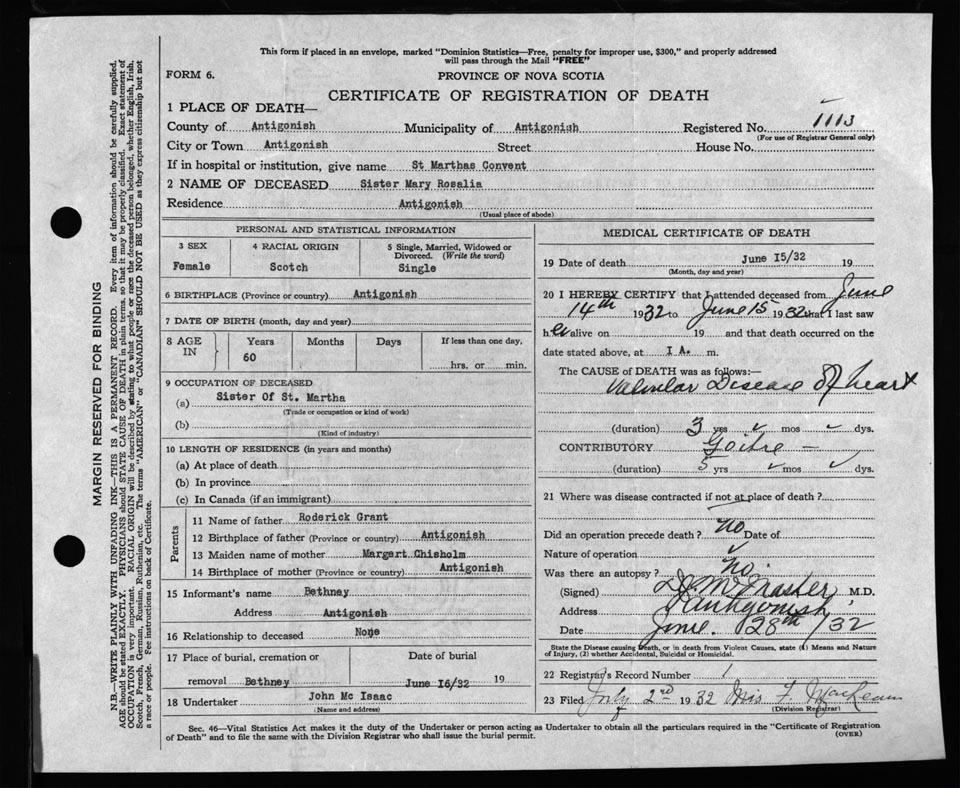 This form if placed in an envelope, marked "Dominion Statistics—Free, penalty for improper use, $300," and properly addressed
will pass through the Mail "FREE"
FORM 6.
PROVINCE OF NOVA SCOTIA
CERTIFICATE OF REGISTRATION OF DEATH
1 PLACE OF DEATH—
County of Antigonish Municipality of Antigonish Registered No. 1113
(For use of Registrar General only)
City or Town Antigonish Street House No.
If in hospital or institution, give name St Marthas Convent
2 NAME OF DECEASED Sister Mary Rosalia
Residence Antigonish
(Usual place of abode)
PERSONAL AND STATISTICAL INFORMATION
3 SEX 4 RACIAL ORIGIN 5 Single, Married, Widowed or
Divorced. (Write the word)
Female Scotch Single
6 BIRTHPLACE (Province or country) Antigonish
7 DATE OF BIRTH (month, day and year)
8 AGE IN Years Months Days If less than one day,
60 hrs. or min.
9 OCCUPATION OF DECEASED
(a) Sister Of St. Martha
(Trade or occupation or kind of work)
(b)
(Kind of industry)
10 LENGTH OF RESIDENCE (in years and months)
(a) At place of death
(b) In province
(c) In Canada (if an immigrant)
Parents
11 Name of father Roderick Grant
12 Birthplace of father (Province or country) Antigonish
13 Maiden name of mother Margart Chisholm
14 Birthplace of mother (Province or country) Antigonish
15 Informant's name Bethney
Address Antigonish
16 Relationship to deceased None
17 Place of burial, cremation or Date of burial
removal Bethney June I6/32 19
18 Undertaker John Mc Isaac
(Name and address)
MEDICAL CERTIFICATE OF DEATH
19 Date of death June I5/32 19
(Month, day and year)
20 I HEREBY CERTIFY that I attended deceased from June
14th 1932 to June 15 1932 that I last saw
her alive on 19 and that death occurred on the
date stated above, at I A. m.
The CAUSE OF DEATH was as follows:—
Valvular Disease of heart
(duration) 3 yrs ✓ mos ✓ dys.
CONTRIBUTORY Goitre —
(duration) 5 yrs ✓ mos ✓ dys.
21 Where was disease contracted if not at place of death?
Did an operation precede death? no Date of
Nature of operation ✓
Was there an autopsy? no.
(Signed) McFrasher M.D.
Address Antigonish
Date June. 28th /32
State the Disease causing Death, or in death from Violent Causes, state (1) Means and Nature
of Injury, (2) whether Accidental, Suicidal or Homicidal.
22 Registrar's Record Number 1
23 Filed July 2nd 1932 Miss F. MacLean
(Division Registrar)
Sec. 46—Vital Statistics Act makes it the duty of the Undertaker or person acting as Undertaker to obtain all the particulars required in the "Certificate of Registration
of Death" and to file the same with the Division Registrar who shall issue the burial permit.
(OVER)
MARGIN RESERVED FOR BINDING
N.B.—WRITE PLAINLY WITH UNFADING INK—THIS IS A PERMANENT RECORD. Every item of information should be carefully supplied.
AGE should be stated EXACTLY. PHYSICIANS should STATE CAUSE OF DEATH in plain terms, so that it may be properly classified. Exact statement of
OCCUPATION is very important. RACIAL ORIGIN will be described by stating to what people or race the deceased person belonged, whether English, Irish,
Scotch, French, German, Russian, Ruthenian, etc. The terms "AMERICAN" or "CANADIAN" SHOULD NOT BE USED as they express citizenship but not
a race or people. See instructions on back of Certificate.